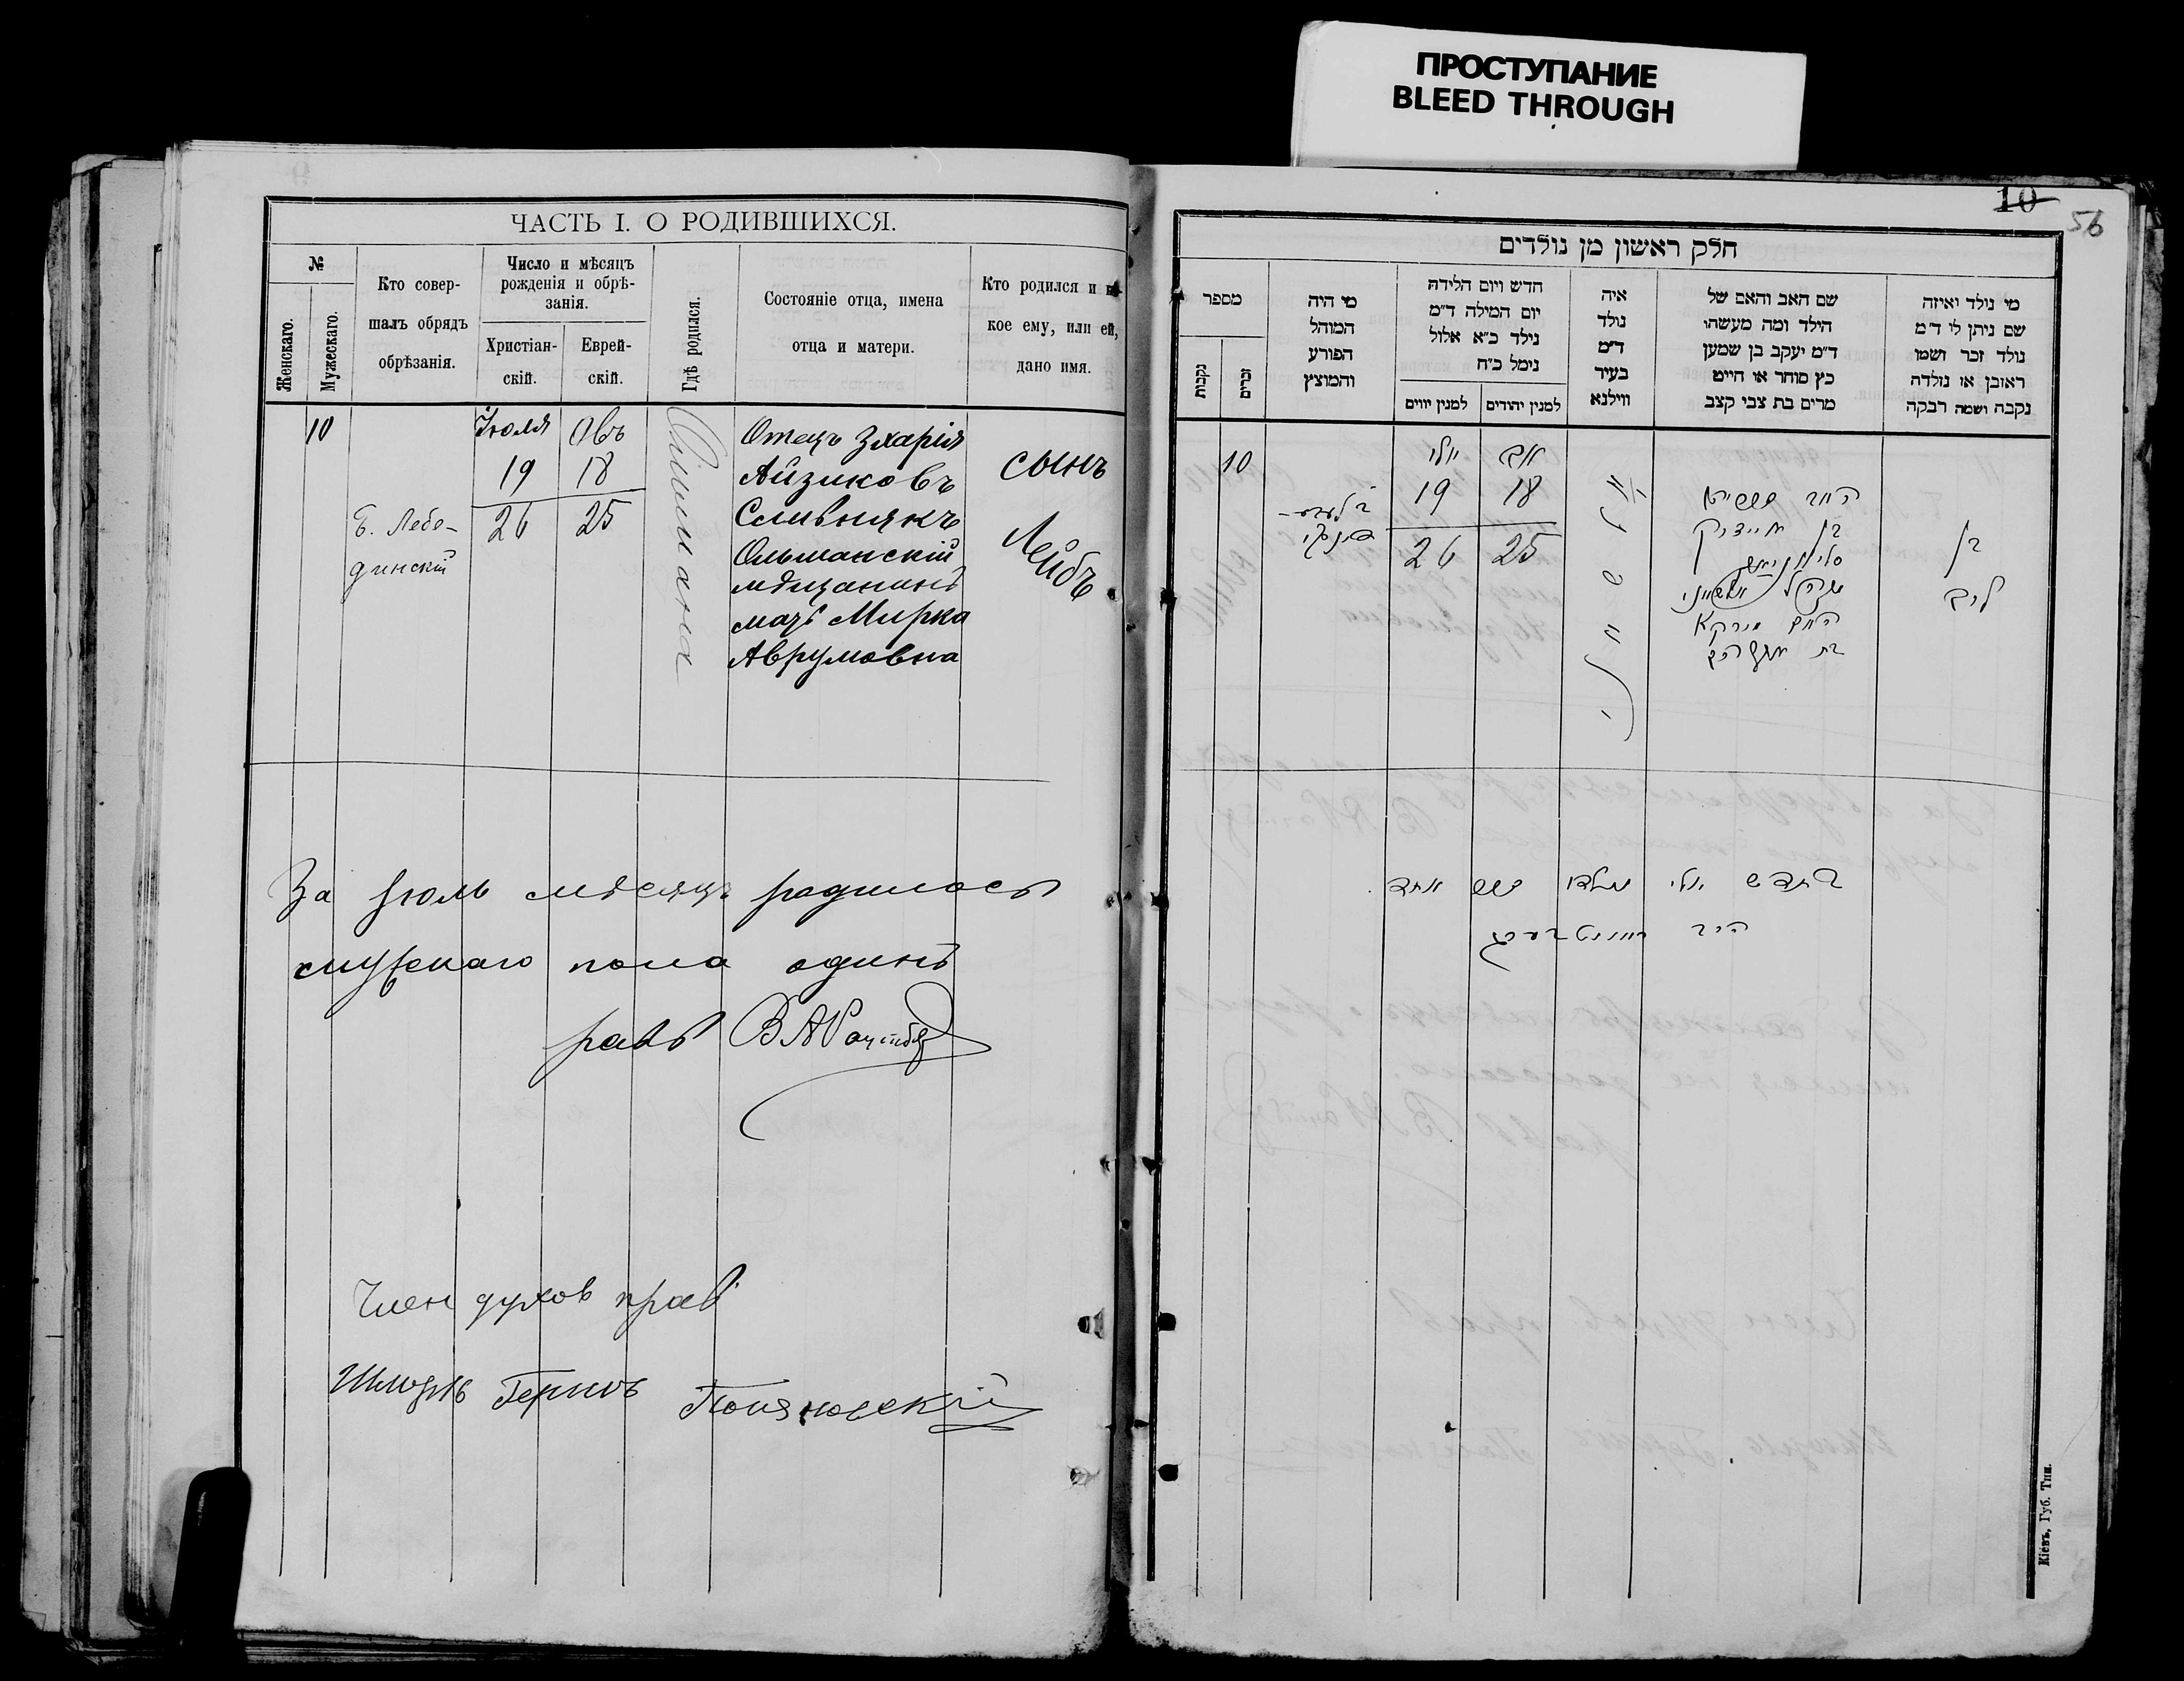 ПРОСТУПАНИЕ
BLEED THROUGH
ЧАСТЬ I. О РОДИВШИХСЯ.
№
Женскаго.
Мужескаго.
Кто совер-
шалъ обрядъ
обрѣзанія.
Число и мѣсяцъ
рожденія и обрѣ-
занія.
Христіан-
скій.
Еврей-
скій.
Гдѣ родился.
Состояніе отца, имена
отца и матери.
Кто родился и ка-
кое ему, или ей,
дано имя.
10
Б. Лебе-
динскій
Іюля
19
26
Авъ
18
25
Отецъ Зхарія
Айзиковъ
Сливнякъ
Ольшанскій
мѣщанинъ
мать Мирка
Аврумовна
сынъ
Лейбъ
За Іюль мѣсяцъ родилось
мужскаго пола одинъ
равъ
Член духов прав
10
56
חלק ראשון מן נולדים
מי נולד ואיזה
שם ניתן לו ד״מ
נולד זכר ושמו
ראובן או נולדה
נקבה ושמה רבקה
שם האב והאם של
הילד ומה מעשהו
ד״מ יעקב בן שמען
כץ סוחר או חייט
מרים בת צבי קצב
איה
נולד
ד״מ
בעיר
ווילנא
חדש ויום הלידה
יום המילה ד״מ
נילד כ״א אלול
נימל כ״ח
למנין יהודים
למנין יווים
מי היה
המוהל
הפורע
והמוצץ
מספר
זכרים
נקבות
בן
ליב
אב
18
25
יולי
19
26
10
בחדש יולי נולדו זכר אחד
Кіевъ, Губ. Тип.